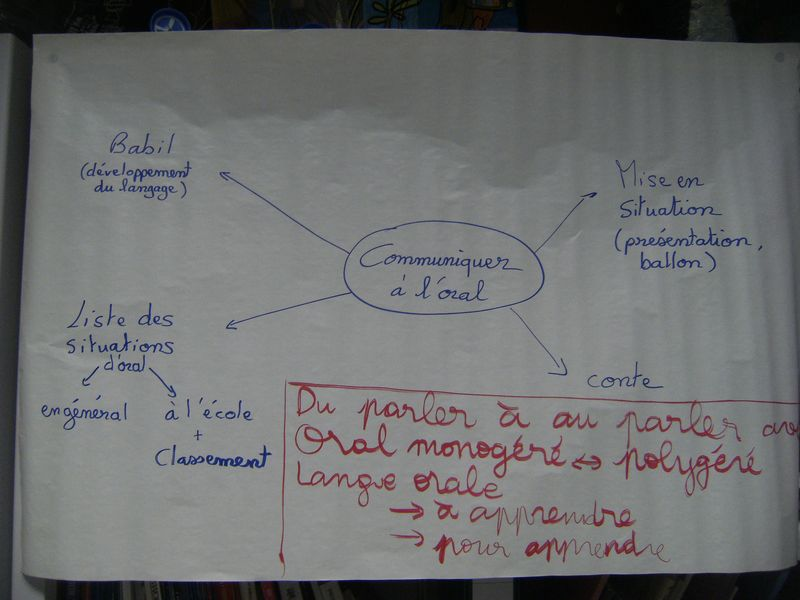 Babil
(développement
du langage)
Mise en
situation
(présentation,
ballon)
Communiquer
à l'oral
Liste des
situations
d'oral
en général
à l'école
+
Classement
conte
Du parler à au parler
Oral monogéré ↔ polygéré
Langue orale
→ à apprendre
→ pour apprendre